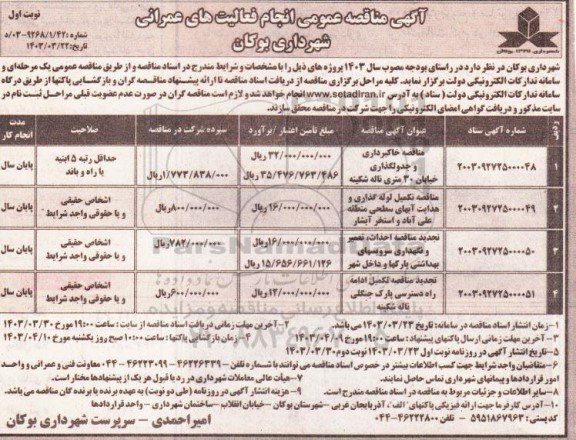 نوبت اول
آگهی مناقصه عمومی انجام فعالیت های عمرانی
شهرداری بوکان
شماره: ۰۳/د-۹۲۶۸/۱/۴۲
تاریخ: ۱۴۰۳/۰۳/۲۲
شهرداری بوکان
شهرداری بوکان در نظر دارد در راستای بودجه مصوب سال ۱۴۰۳ پروژه های ذیل را با مشخصات و شرایط مندرج در اسناد مناقصه و از طریق مناقصه عمومی یک مرحله‌ای و
سامانه تدارکات الکترونیکی دولت برگزار نماید. کلیه مراحل برگزاری مناقصه از دریافت اسناد مناقصه تا ارائه پیشنهاد مناقصه گران و بازگشایی پاکتها از طریق درگاه
سامانه تدارکات الکترونیکی دولت ( ستاد ) به آدرس www.setadiran.ir انجام خواهد شد و لازم است مناقصه گران در صورت عدم عضویت قبلی مراحل ثبت نام در
سایت مذکور و دریافت گواهی امضای الکترونیکی را جهت شرکت در مناقصه محقق سازند.
ردیف	شماره آگهی ستاد	عنوان آگهی مناقصه	مبلغ تامین اعتبار / برآورد	سپرده شرکت در مناقصه	صلاحیت	مدت انجام کار
۱	۲۰۰۳۰۹۲۷۲۵۰۰۰۰۴۸	مناقصه خاکبرداری و جدولگذاری خیابان ۳۰ متری ناله شکینه	۳۲/۰۰۰/۰۰۰/۰۰۰ ریال ۳۵/۴۷۶/۷۶۳/۴۸۶ ریال	۱/۷۷۳/۸۳۸/۰۰۰ریال	حداقل رتبه ۵ ابنیه یا راه و باند	پایان سال
۲	۲۰۰۳۰۹۲۷۲۵۰۰۰۰۴۹	مناقصه تکمیل لوله گذاری و هدایت آبهای سطحی منطقه علی آباد و استخر آبشار	۱۶/۰۰۰/۰۰۰/۰۰۰ریال	۸۰۰/۰۰۰/۰۰۰ریال	اشخاص حقیقی و یا حقوقی واجد شرایط	پایان سال
۳	۲۰۰۳۰۹۲۷۲۵۰۰۰۰۵۰	تجدید مناقصه احداث، تعمیر و نگهداری سرویسهای بهداشتی پارکها و داخل شهر	۱۶/۰۰۰/۰۰۰/۰۰۰ریال ۱۵/۶۵۶/۶۶۱/۱۲۶ ریال	۷۸۲/۰۰۰/۰۰۰ریال	اشخاص حقیقی و یا حقوقی واجد شرایط	پایان سال
۴	۲۰۰۳۰۹۲۷۲۵۰۰۰۰۵۱	تجدید مناقصه تکمیل ادامه راه دسترسی پارک جنگلی ناله شکینه	۱۲/۰۰۰/۰۰۰/۰۰۰ریال	۶۰۰/۰۰۰/۰۰۰ریال	اشخاص حقیقی و یا حقوقی واجد شرایط	پایان سال
۱- زمان انتشار اسناد مناقصه در سامانه: تاریخ ۱۴۰۳/۰۳/۲۳ می باشد. ۲- آخرین مهلت زمانی دریافت اسناد مناقصه از سایت: ساعت ۱۹:۰۰ مورخ ۱۴۰۳/۰۳/۳۰
۳- آخرین مهلت زمانی ارسال پاکتهای پیشنهاد: ساعت ۱۹:۰۰ مورخ ۱۴۰۳/۰۴/۰۹ ۴- زمان بازگشایی پاکتها: ساعت ۱۰:۰۰ صبح روز یکشنبه مورخ ۱۴۰۳/۰۴/۱۰
۵- تاریخ انتشار آگهی در روزنامه نوبت اول ۱۴۰۳/۰۳/۲۳ نوبت دوم ۱۴۰۳/۰۳/۳۰
۶- متقاضیان واجد شرایط جهت کسب اطلاعات بیشتر در خصوص اسناد مناقصه می توانند با شماره تلفن ۴۶۲۲۶۳۳۹ - ۴۶۲۲۳۰۹۹-۰۴۴ معاونت فنی و عمرانی و واحد
امور قراردادها و پیمانهای شهرداری تماس حاصل نمایند. ۷- هیأت عالی معاملات شهرداری در رد یا قبول هر یک از پیشنهادها مختار است.
۸- سایر اطلاعات و جزئیات مربوط به مناقصه در اسناد مناقصه مندرج است. ۹- هزینه انتشار آگهی در روزنامه (طی دو نوبت) به عهده برنده یا برنده گان مناقصه می باشد.
۱۰- آدرس کارفرما جهت ارائه فیزیکی پاکتهای "الف"، آذربایجان غربی - شهرستان بوکان - خیابان انقلاب - ساختمان شهرداری - واحد قراردادها
کدپستی: ۵۹۵۱۸۶۷۹۶۳ تلفن: ۴۶۲۲۲۸۰۰-۰۴۴
امیر احمدی - سرپرست شهرداری بوکان